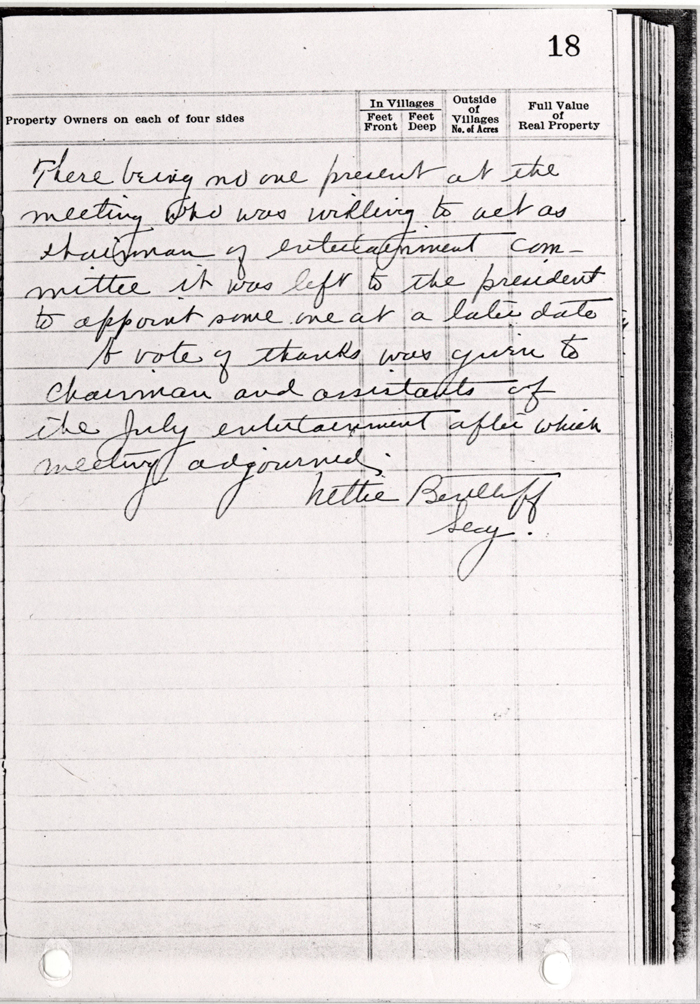 18
Property Owners on each of four sides
In Villages
Feet Front
Feet Deep
Outside of Villages No. of Acres
Full Value of Real Property
There being no one present at the
meeting who was willing to act as
chairman of entertainment com-
mittee it was left to the president
to appoint some one at a later date
A vote of thanks was given to
chairman and assistants of
the July entertainment after which
meeting adjourned.
Nettie
Secy.